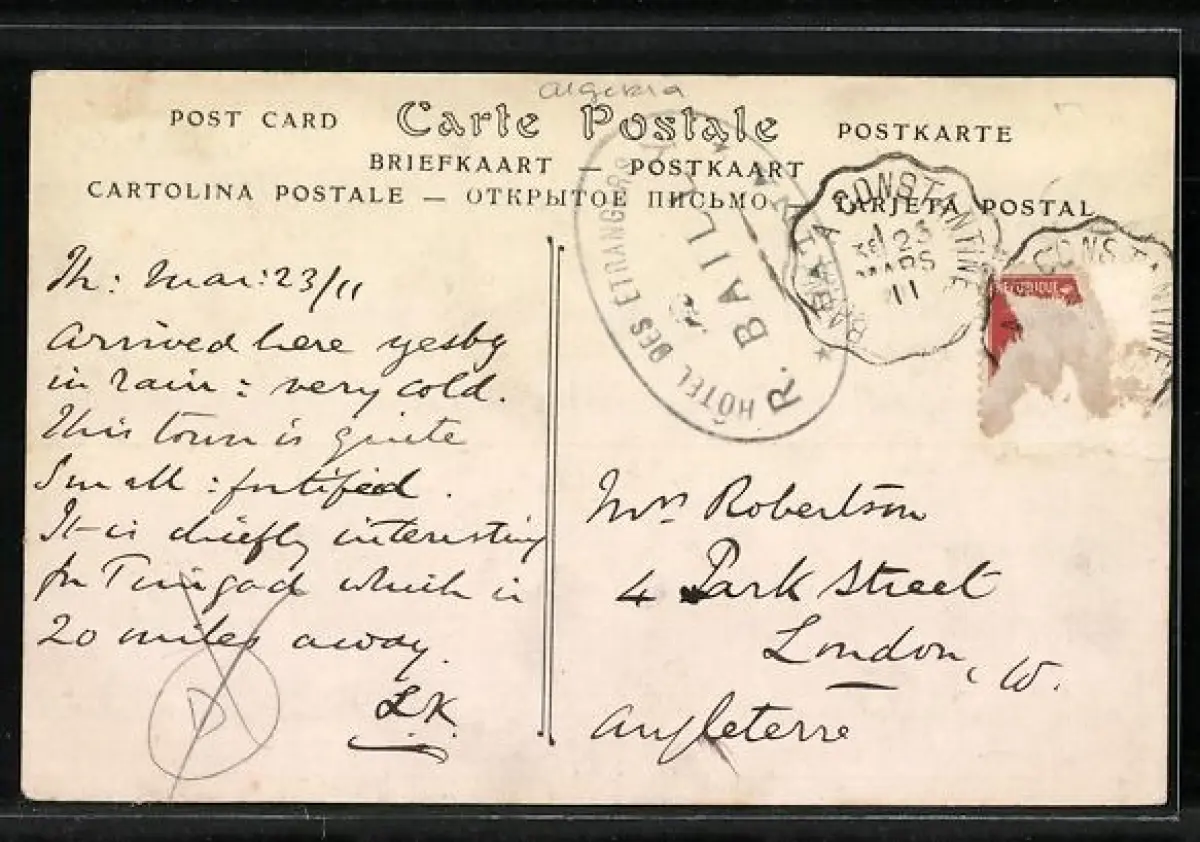 Algeria
POST CARD Carte Postale POSTKARTE
BRIEFKAART — POSTKAART
CARTOLINA POSTALE — ОТКРЫТОЕ ПИСЬМО — TARJETA POSTAL
HÔTEL DES ÉTRANGERS
R. BAILLY
A CONSTANTINE
23
MARS
11
CONSTANTINE
REPUBLIQUE
Th: Mar: 23/11
Arrived here yesty
in rain: very cold.
This town is quite
small: fortified.
It is chiefly interesting
for Timgad which is
20 miles away.
L.K.
D
Mrs Robertson
4 Park Street
London, W.
Angleterre